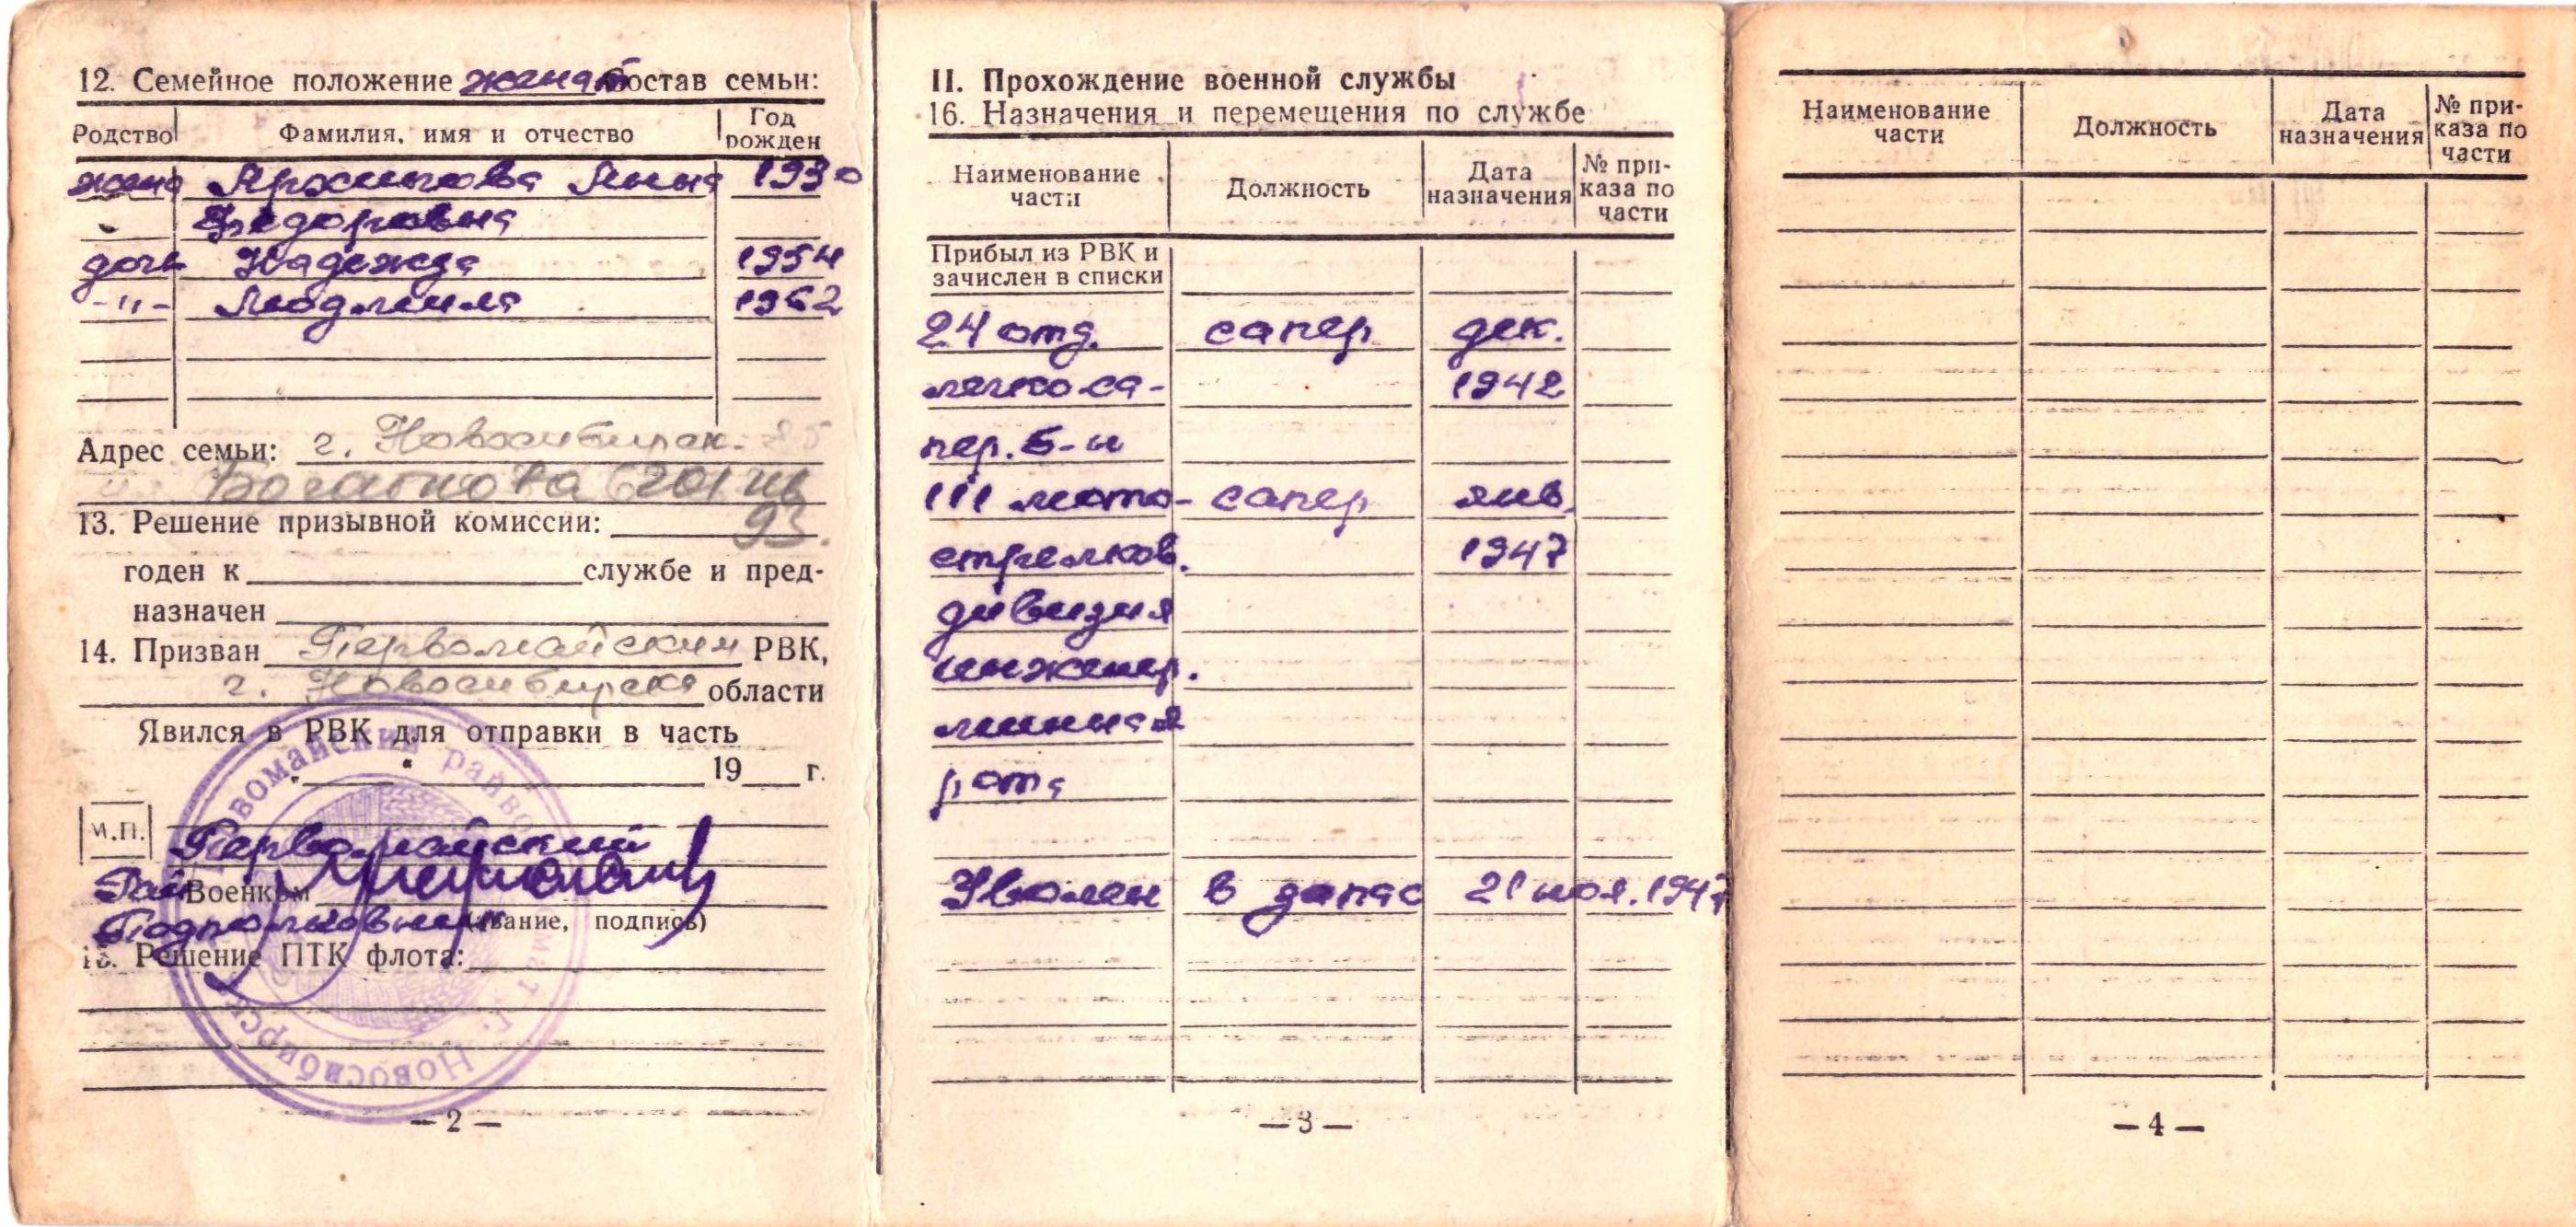 12. Семейное положение женат Состав семьи:
Родство Фамилия, имя и отчество Год рожден
жена Архипова Анна 1930
Федоровна
дочь Надежда 1954
-"- Людмила 1962
Адрес семьи: г. Новосибирск-85
Богаткова 201 кв
93.
13. Решение призывной комиссии:
годен к службе и пред-
назначен
14. Призван Первомайским РВК,
г. Новосибирска области
Явился в РВК для отправки в часть
" 19 г.
м.П.
Первомайский
Рай Военком
Подполковник (звание, подпись)
15. Решение ПТК флота:
Первомайский райво мат г. Новосибирск
— 2 —
II. Прохождение военной службы
16. Назначения и перемещения по службе
Наименование части Должность Дата назначения № при-каза по части
Прибыл из РВК и
зачислен в списки
24 отд. сапер дек.
легко са- 1942
пер. б-н
111 мото- сапер янв.
стрелков. 1947
дивизия
инженер.
минная
рота
Уволен в запас 21 ноя. 1947
— 3 —
Наименование части Должность Дата назначения № при-каза по части
— 4 —